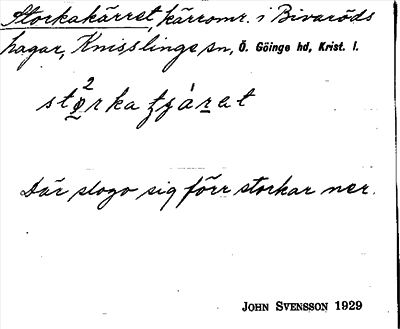 Storkakärret, kärromr. i Bivaröds
hagar, Knisslinge sn, Ö. Göinge hd, Krist. l.
Där slogo sig förr storkar ner.
JOHN SVENSSON 1929